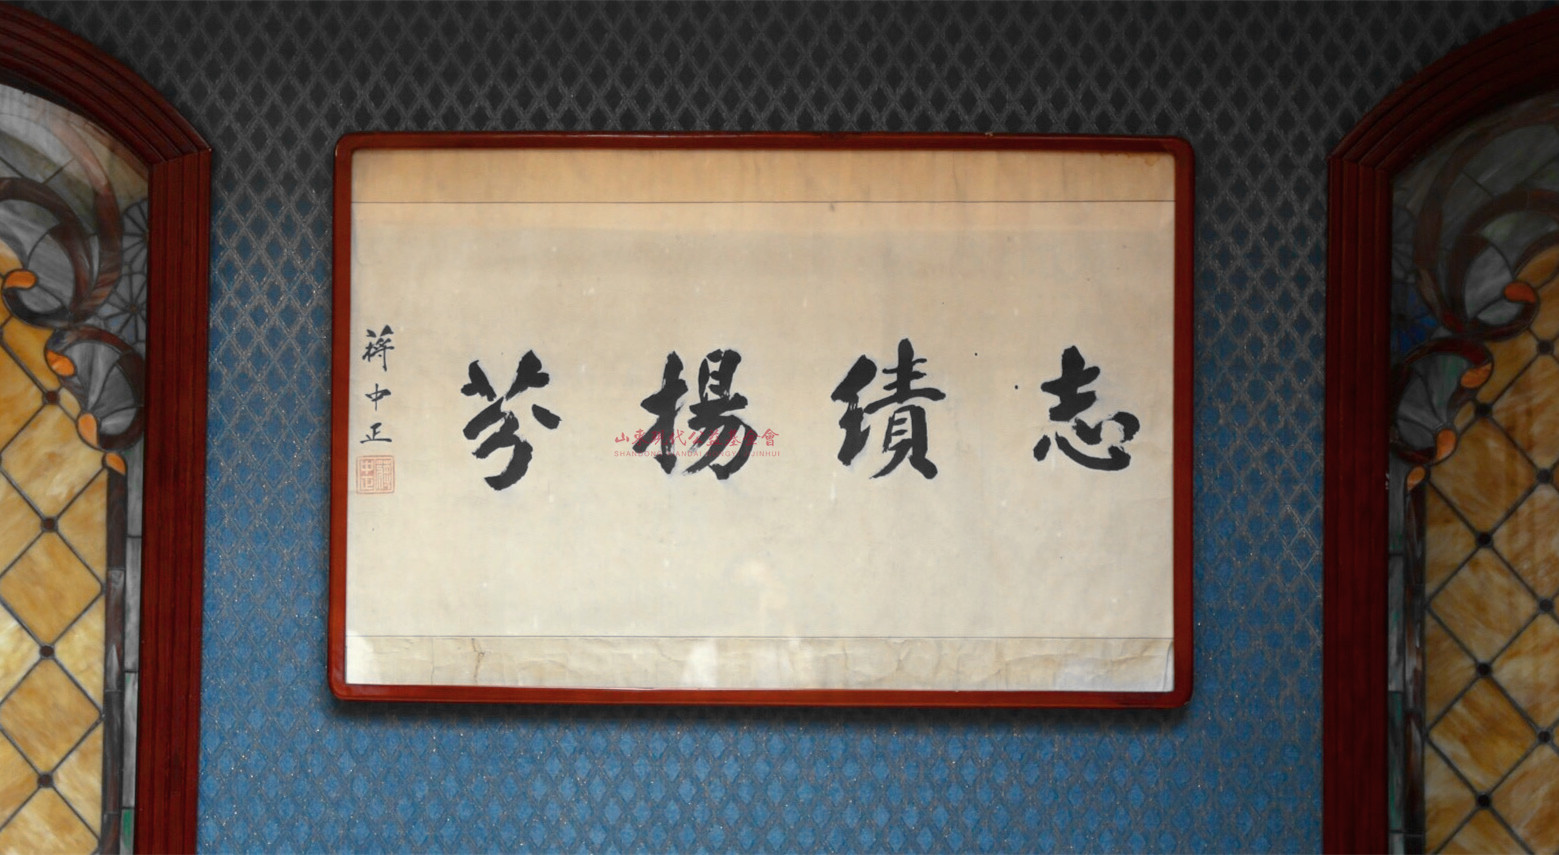 志績揚芬
蔣中正
山東現代公益基金會
SHANDONG XIANDAI GONGYI JIJINHUI